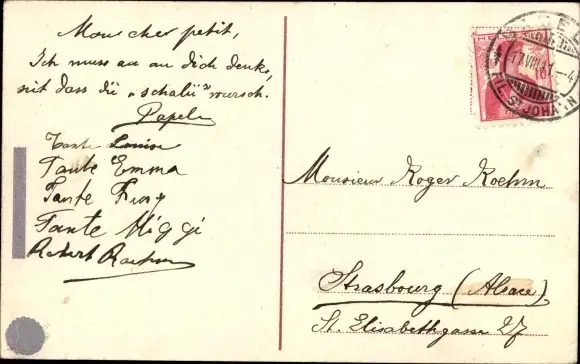 Mon cher petit,
Ich muss au an dich denke,
nit dass dü "schalü" wursch.
Papele
Tante Louise
Tante Emma
Tante Funy
Tante Miggi
Robert Roehm
HE
17.VIII.11.-4
FIL. ST. JOHANN
Monsieur Roger Roehm
Strasbourg (Alsace)
St. Elisabethgasse 27